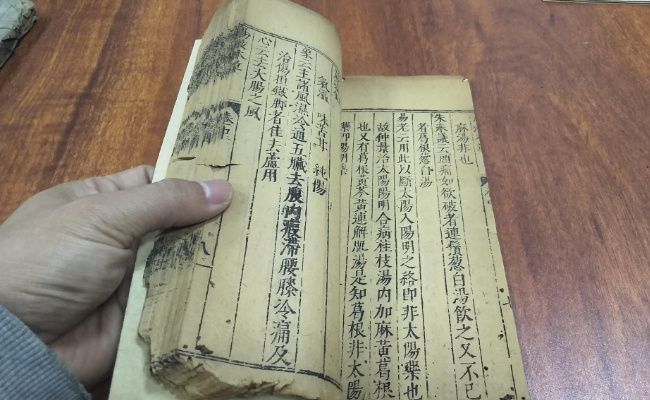 麻湯非也
朱奉議云頭痛如欲破者連鬚葱白湯飲之又不已
者葛根葱白湯
易老云用此以斷太陽入陽明之路即非太陽藥也
故仲景治太陽陽明合病桂枝湯內加麻黃葛根
也又有葛根黃芩黃連解肌湯是知葛根非太陽
藥即陽明藥
味苦甘 純陽
象云主諸風濕冷通五臟去腹內滯腰膝冷痛及
治傷損鐵脚者佳去蘆用
心云去大腸之風